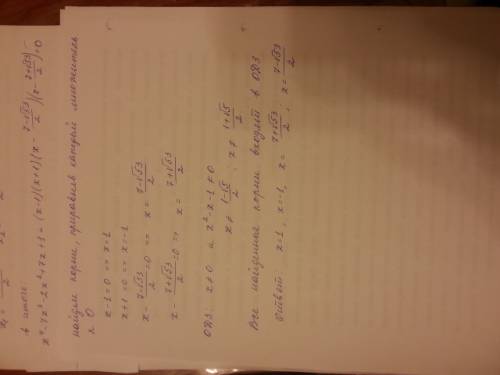 в итоге
x⁴-7x³-2x²+7x+1 = (x-1)(x+1)(x - (7-√53)/2)(x - (7+√53)/2) = 0
найдём корни, приравняв каждый множитель
к 0
x-1=0 => x=1
x+1=0 => x=-1
x - (7-√53)/2 = 0 => x = (7-√53)/2
x - (7+√53)/2 = 0 => x = (7+√53)/2
ОДЗ. x≠0 и x²-x-1≠0
x ≠ (1-√5)/2 ; x ≠ (1+√5)/2
Все найденные корни входят в ОДЗ
Ответ: x=1, x=-1, x = (7+√53)/2 ; x = (7-√53)/2